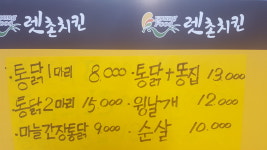 렛츤치킨 렛츤치킨
·통닭1마리 8000 ·통닭+똥집 13.000
통닭2마리 15000 ·윙날개 12000
·마늘간장통닭 9000 ·순살 10.000